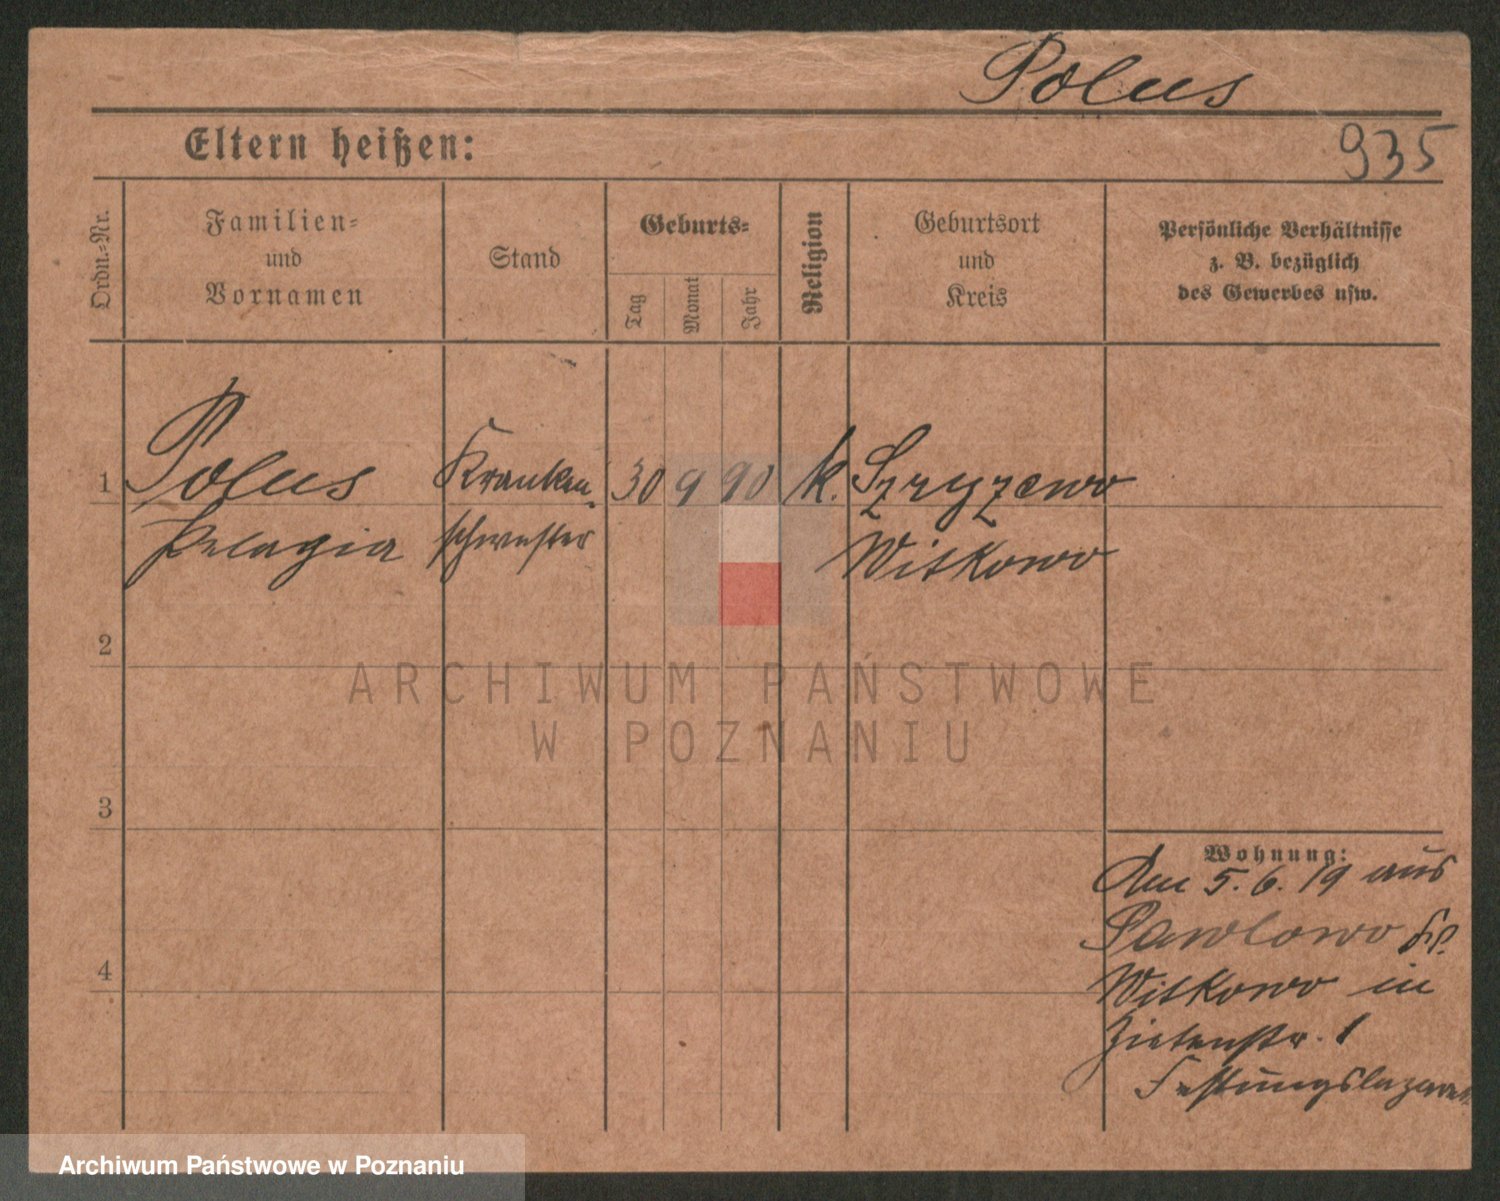 Polus
935
Eltern heißen:
Ordn.=Nr.
Familien=
und
Vornamen
Stand
Geburts=
Tag
Monat
Jahr
Religion
Geburtsort
und
Kreis
Persönliche Verhältnisse
z. B. bezüglich
des Gewerbes usw.
1 Polus Kranken- 30 9 90 k.
Pelagia schwester Witkowo
2
ARCHIWUM PAŃSTWOWE
W POZNANIU
3
Wohnung:
Am 5. 6. 19 aus
Pawlowo Kr.
4
Witkowo in
Zietenstr. 1
Festungslazarett
Archiwum Państwowe w Poznaniu